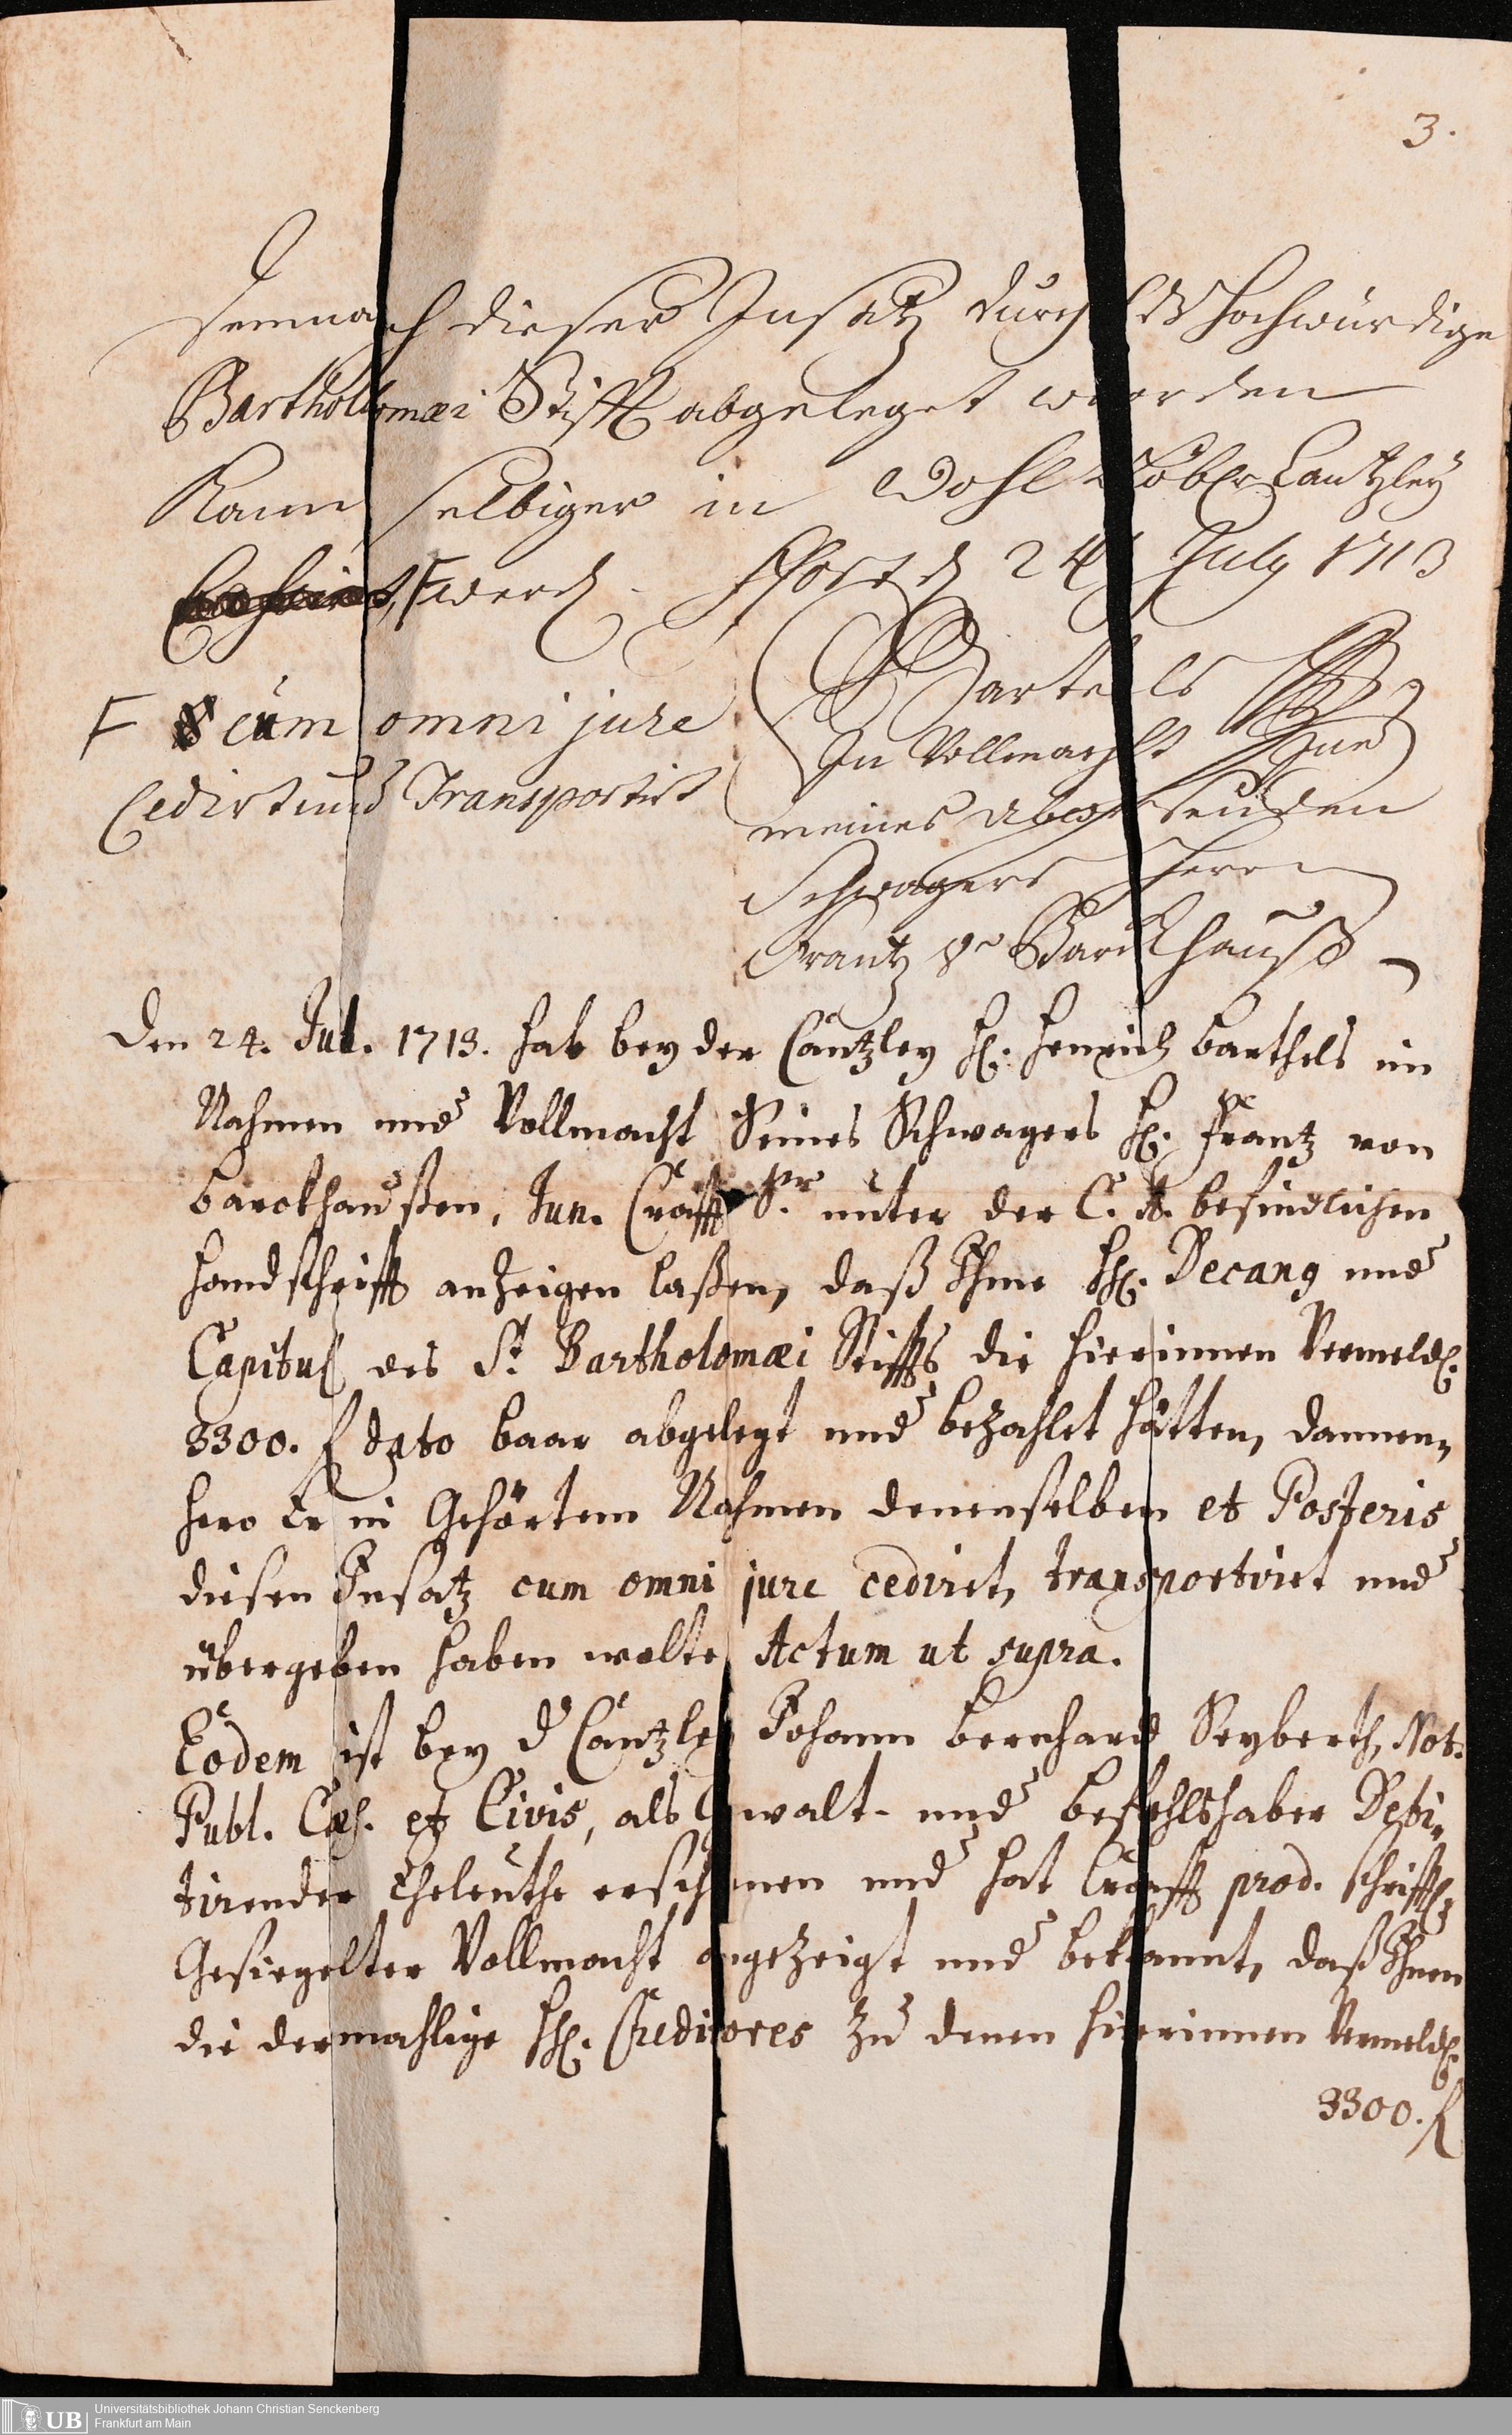 3.
Demnach dieser Insatz durch d Hochwürdige
Bartholomæi Stifft abgeleget worden
Kann selbiger in Wohl Löbl Cantzley
F werd. Ffort d 24 July 1713
F cum omni jure
Cedirt und Transportirt
Bartels
In Vollmacht
meines abwesenden
Schwagers Herrn
Frantz v Barckhauß
Den 24. Jul. 1713. hat bey der Cantzley H. Henrich Barthels im
Nahmen und Vollmacht Seines Schwagers H. Frantz von
Barckhaußen, Jun. Crafft Sr unter der C. A. befindlichen
Handschrifft anzeigen laßen, daß Ihme HH. Decang und
Capitul des St. Bartholomæi Stiffts die hierinnen Vermeld.
3300. f dato baar abgelegt und bezahlet hätten, dannen„
hero Er in Gehörtem Nahmen denenselben et Posteris
diesen Insatz cum omni jure cediret, transportiret und
übergeben haben wolte Actum ut supra.
Eodem ist bey d Cantzley Johann Bernhard Seyberth, Not.
Publ. Cæs. et Civis, als Gwalt- und Befehlshaber Debi„
tirender Eheleuthe erschinen und hat Crafft prod. schrifftl
Gesiegelter Vollmacht angezeigt und bekannt, daß Ihnen
die dermahlige HH. Creditores zu denen hierinnen Vermeld.
3300. f
UB
Universitätsbibliothek Johann Christian Senckenberg
Frankfurt am Main